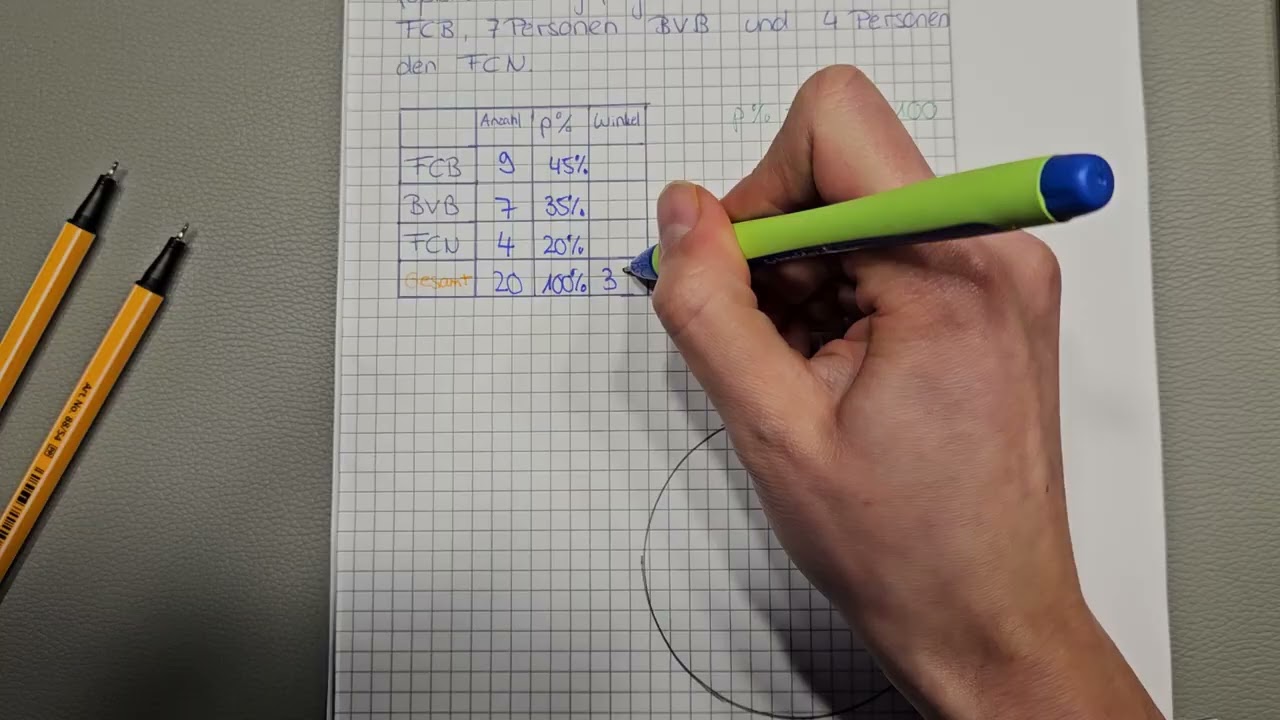 FCB, 7 Personen BVB und 4 Personen
den FCN.
Anzahl p% Winkel
FCB 9 45%
BVB 7 35%
FCN 4 20%
Gesamt 20 100% 3
p% 100
Art. No. 88/54